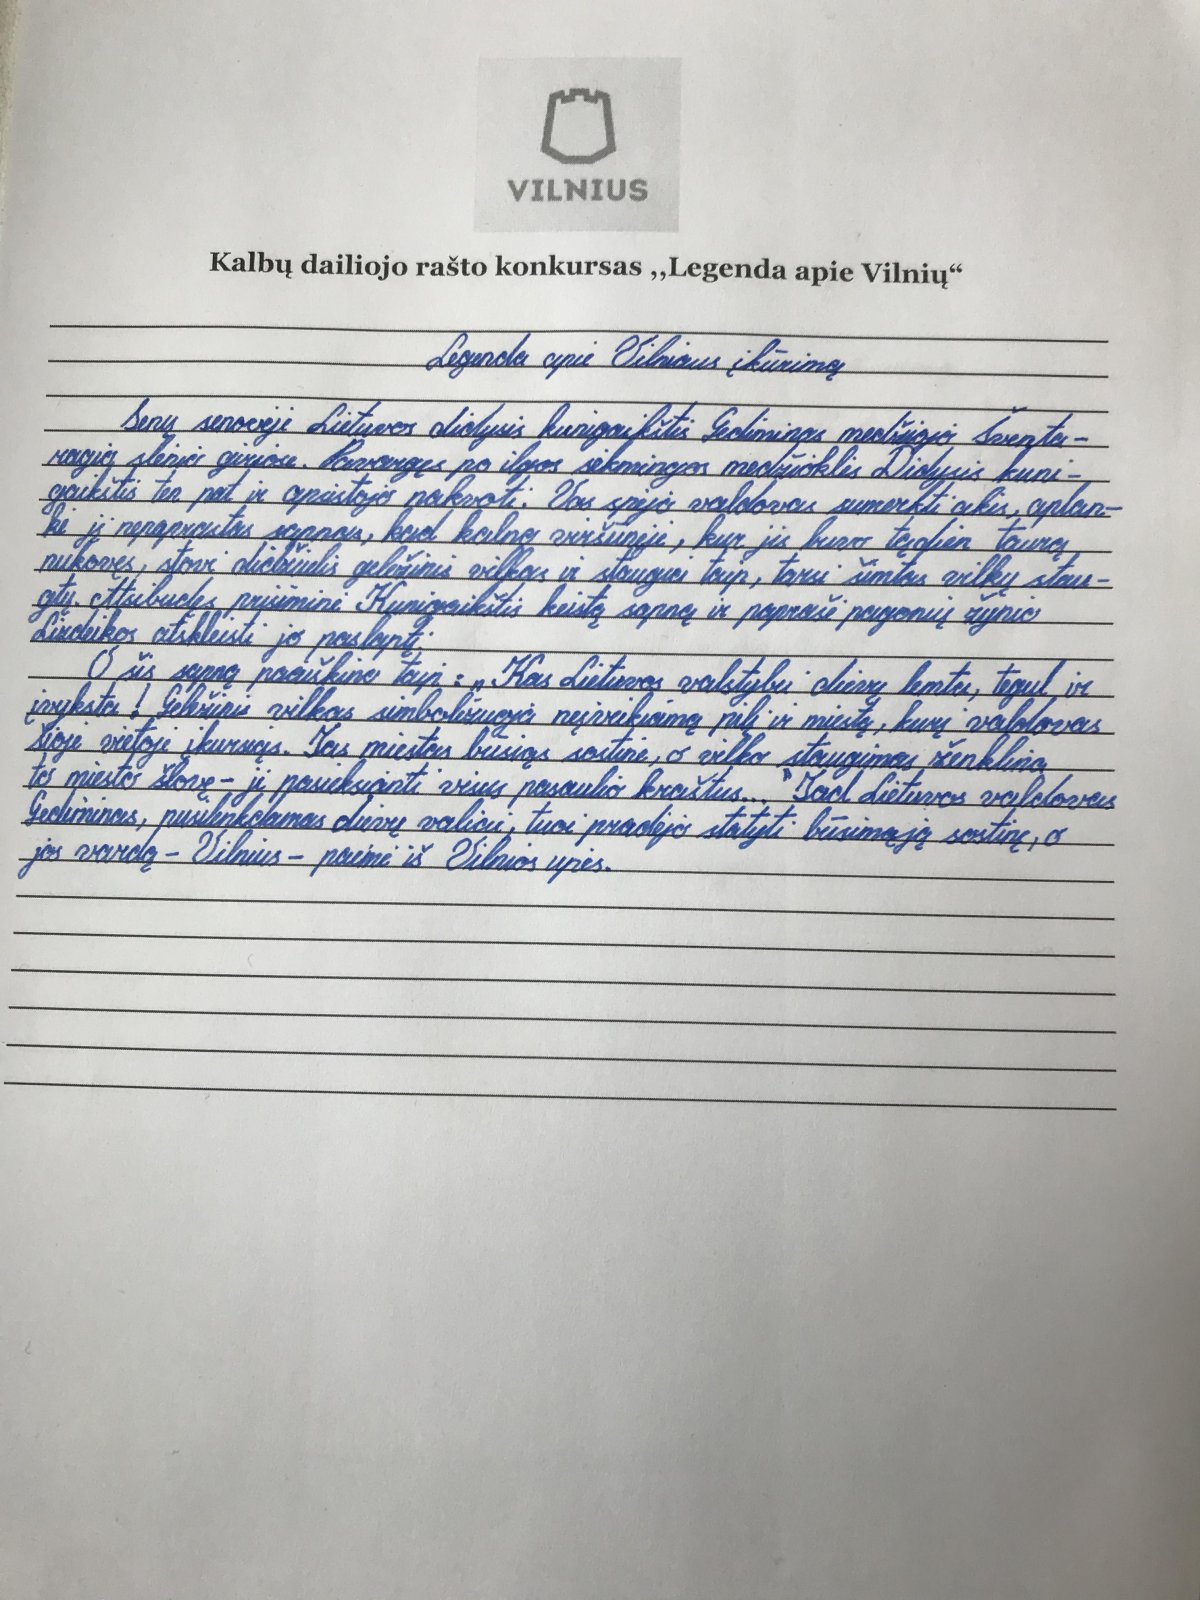 VILNIUS
Kalbų dailiojo rašto konkursas ,,Legenda apie Vilnių“
Legenda apie Vilniaus įkūrimą
Senų senovėje Lietuvos didysis kunigaikštis Gediminas medžiojo Šventa-
ragio slėnio giriose. Pavargęs po ilgos sėkmingos medžioklės Didysis kuni-
gaikštis ten pat ir apsistojo nakvoti. Vos spėjo valdovas sumerkti akis, aplan-
kė jį nepaprastas sapnas, kad kalno viršūnėje, kur jis buvo tądien taurą
nukovęs, stovi didžiulis geležinis vilkas ir staugia taip, tarsi šimtas vilkų stau-
gtų. Atsibudęs prisiminė Kunigaikštis keistą sapną ir paprašė pagonių žynio
Lizdeikos atskleisti jo paslaptį.
O šis sapną paaiškino taip: „Kas Lietuvos valstybei dievų lemta, tegul ir
įvyksta! Geležinis vilkas simbolizuoja neįveikiamą pilį ir miestą, kurį valdovas
šioje vietoje įkursiąs. Tas miestas būsiąs sostinė, o vilko staugimas ženklina
to miesto šlovę - ji pasieksianti visus pasaulio kraštus..." Tad Lietuvos valdovas
Gediminas, nusilenkdamas dievų valiai, tuoj pradėjo statyti būsimąją sostinę, o
jos vardą - Vilnius - paėmė iš Vilnios upės.